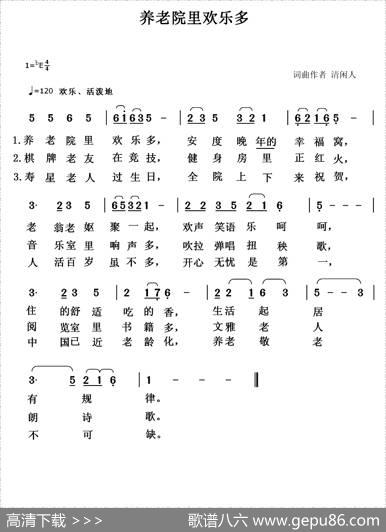 养老院里欢乐多
1=♭E 4/4
词曲作者 清闲人
♩=120 欢乐、活泼地
5 5 6 5 6 1 6 3 5 - 2 3 5 3 2 1 5 - -
1.养老院里 欢乐多， 安度晚年的幸福窝，
2.棋牌老友 在竞技， 健身房里 正红火，
3.寿星老人 过生日， 全院上下 来祝贺，
老 翁老妪 聚一起， 欢声笑语乐呵呵，
音乐室里 响声多， 吹拉弹唱扭秧歌，
人活百岁 虽不多， 开心无忧是第一，
住的舒适 吃的香， 生活起居
阅览室里 书籍多， 文雅老人
中国已近 老龄化， 养老敬老
有规律。
朗诗歌。
不可缺。
高清下载 >>> 歌谱八六 www.gepu86.com